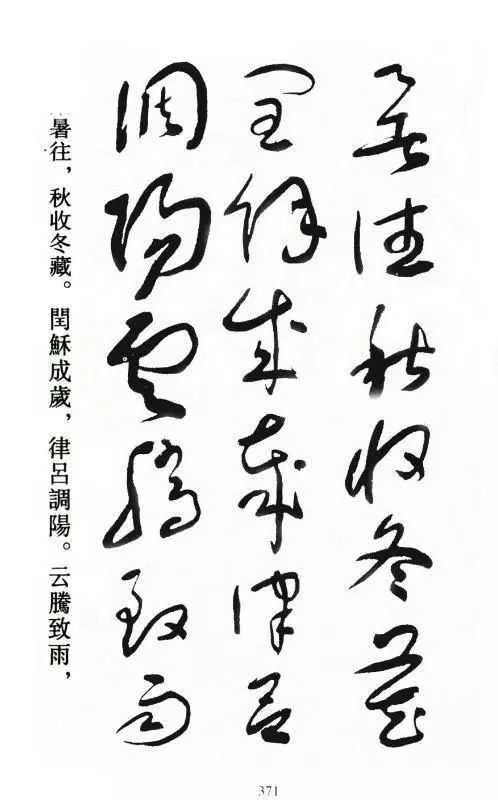 暑往秋收冬藏
閏餘成歲律呂
調陽雲騰致雨
暑往，秋收冬藏。閏穌成歲，律呂調陽。云騰致雨，
371